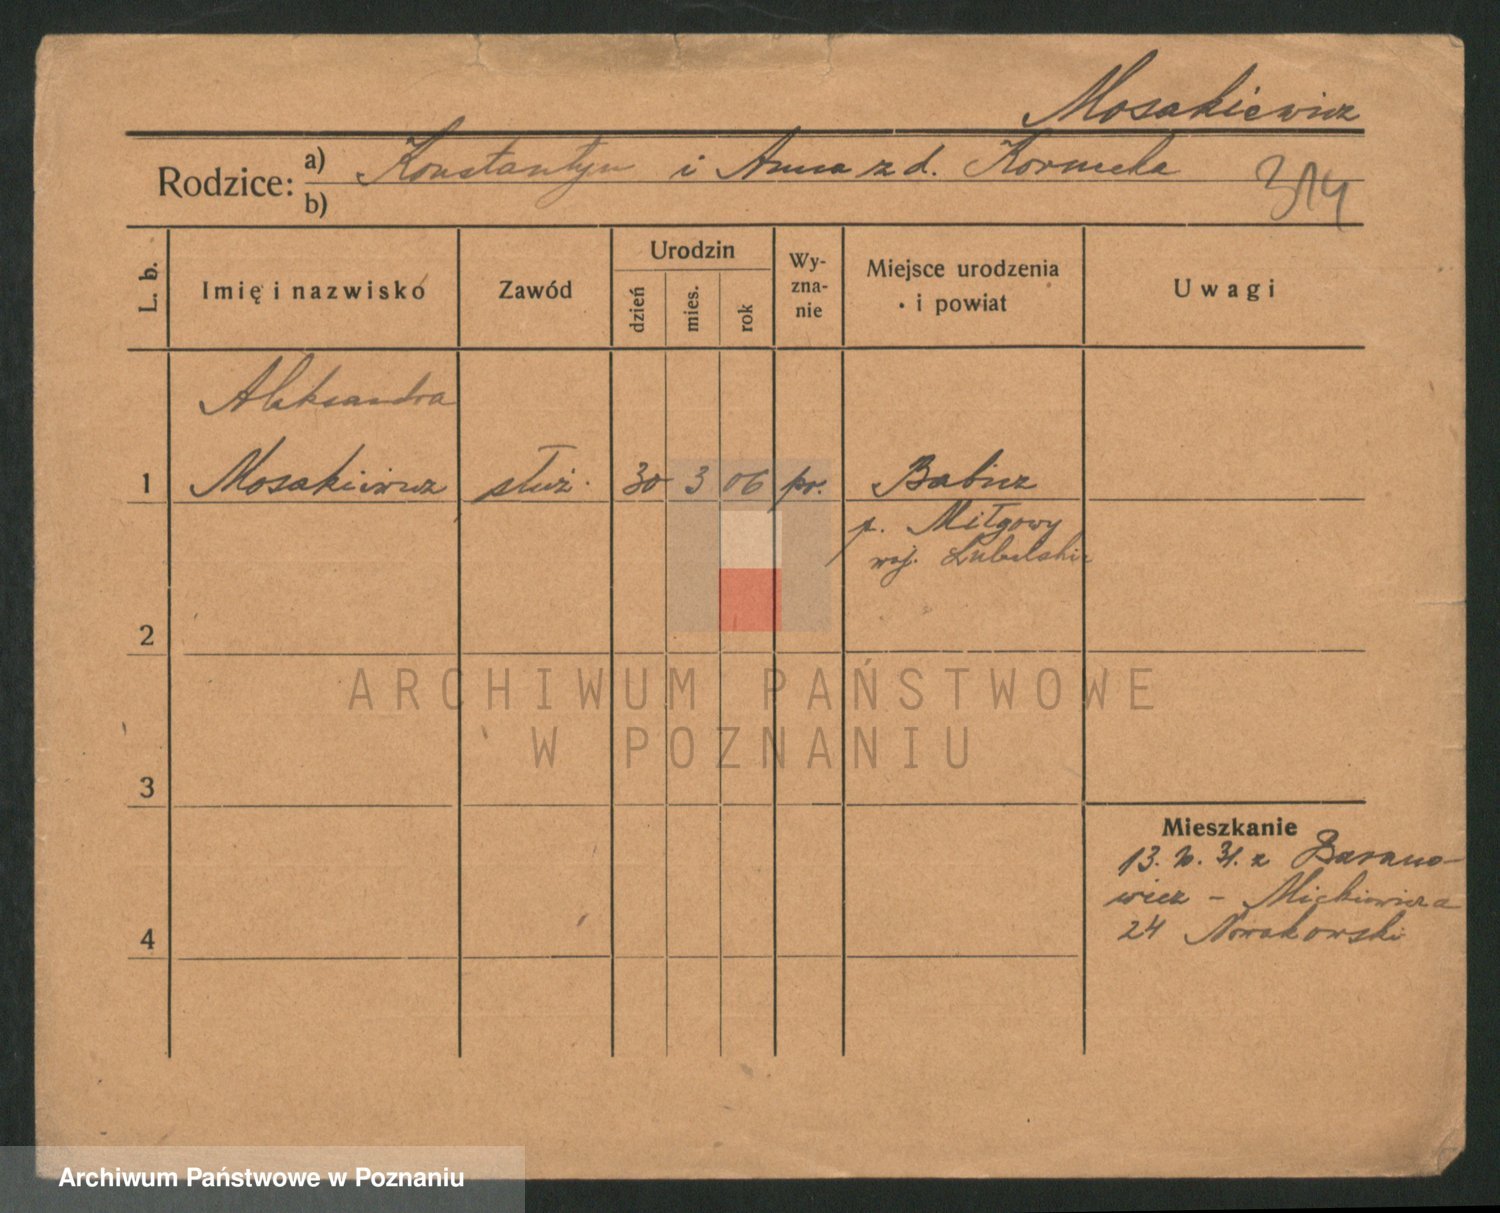 Mosakiewicz
Rodzice: a) Konstantyn i Anna z d. Korneła
b)
314
L. b.
Imię i nazwisko
Zawód
Urodzin
dzień
mies.
rok
Wy-
zna-
nie
Miejsce urodzenia
i powiat
Uwagi
Aleksandra
1 Mosakiewicz służ. 30 3 06 pr. Babicz
p. Miłgowy
woj. Lubelskie
2
3
4
Mieszkanie
13. 31. z Barano-
wicz - Mickiewicza
24 Nowakowski
ARCHIWUM PAŃSTWOWE
W POZNANIU
Archiwum Państwowe w Poznaniu